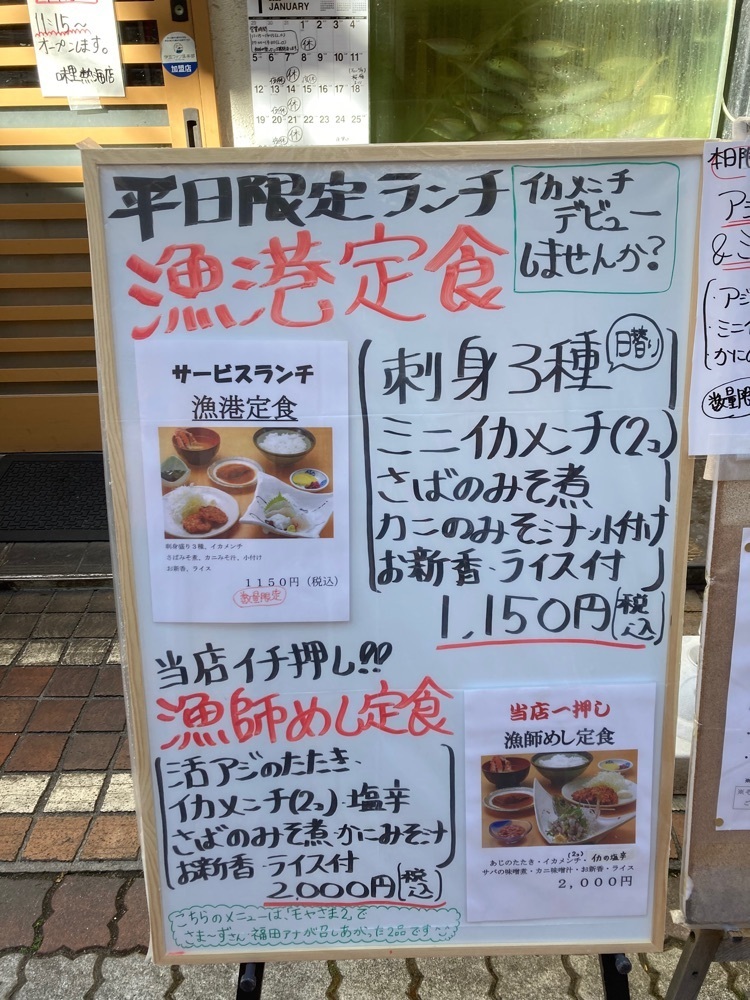 11:15〜
オープンします。
味里熱海店
加盟店
1 JANUARY
1 2 3 4
5 6 7 8 9 10 11
12 13 14 15 16 17 18
19 20 21 22 23 24 25
休
休
休
休
平日限定ランチ
漁港定食
イカメンチ
デビュー
しませんか?
サービスランチ
漁港定食
刺身盛り3種、イカメンチ
さばみそ煮、カニみそ汁、小付け
お新香、ライス
1150円(税込)
数量限定
刺身3種
日替り
ミニイカメンチ(2コ)
さばのみそ煮
カニのみそ汁・小付
お新香・ライス付
1,150円(税込)
当店イチ押し!!
漁師めし定食
活アジのたたき、
イカメンチ(2コ)・塩辛
さばのみそ煮・かにみそ汁
お新香・ライス付
2,000円(税込)
こちらのメニューは、「モヤさま2」で
さまぁ〜ずさん・福田アナが召しあがった2品です
当店一押し
漁師めし定食
あじのたたき・イカメンチ(2コ)・イカの塩辛
サバの味噌煮・カニ味噌汁・お新香・ライス
2,000円
本日限
アジ
&ミ
・アジ
・ミニ
・かに
数量限